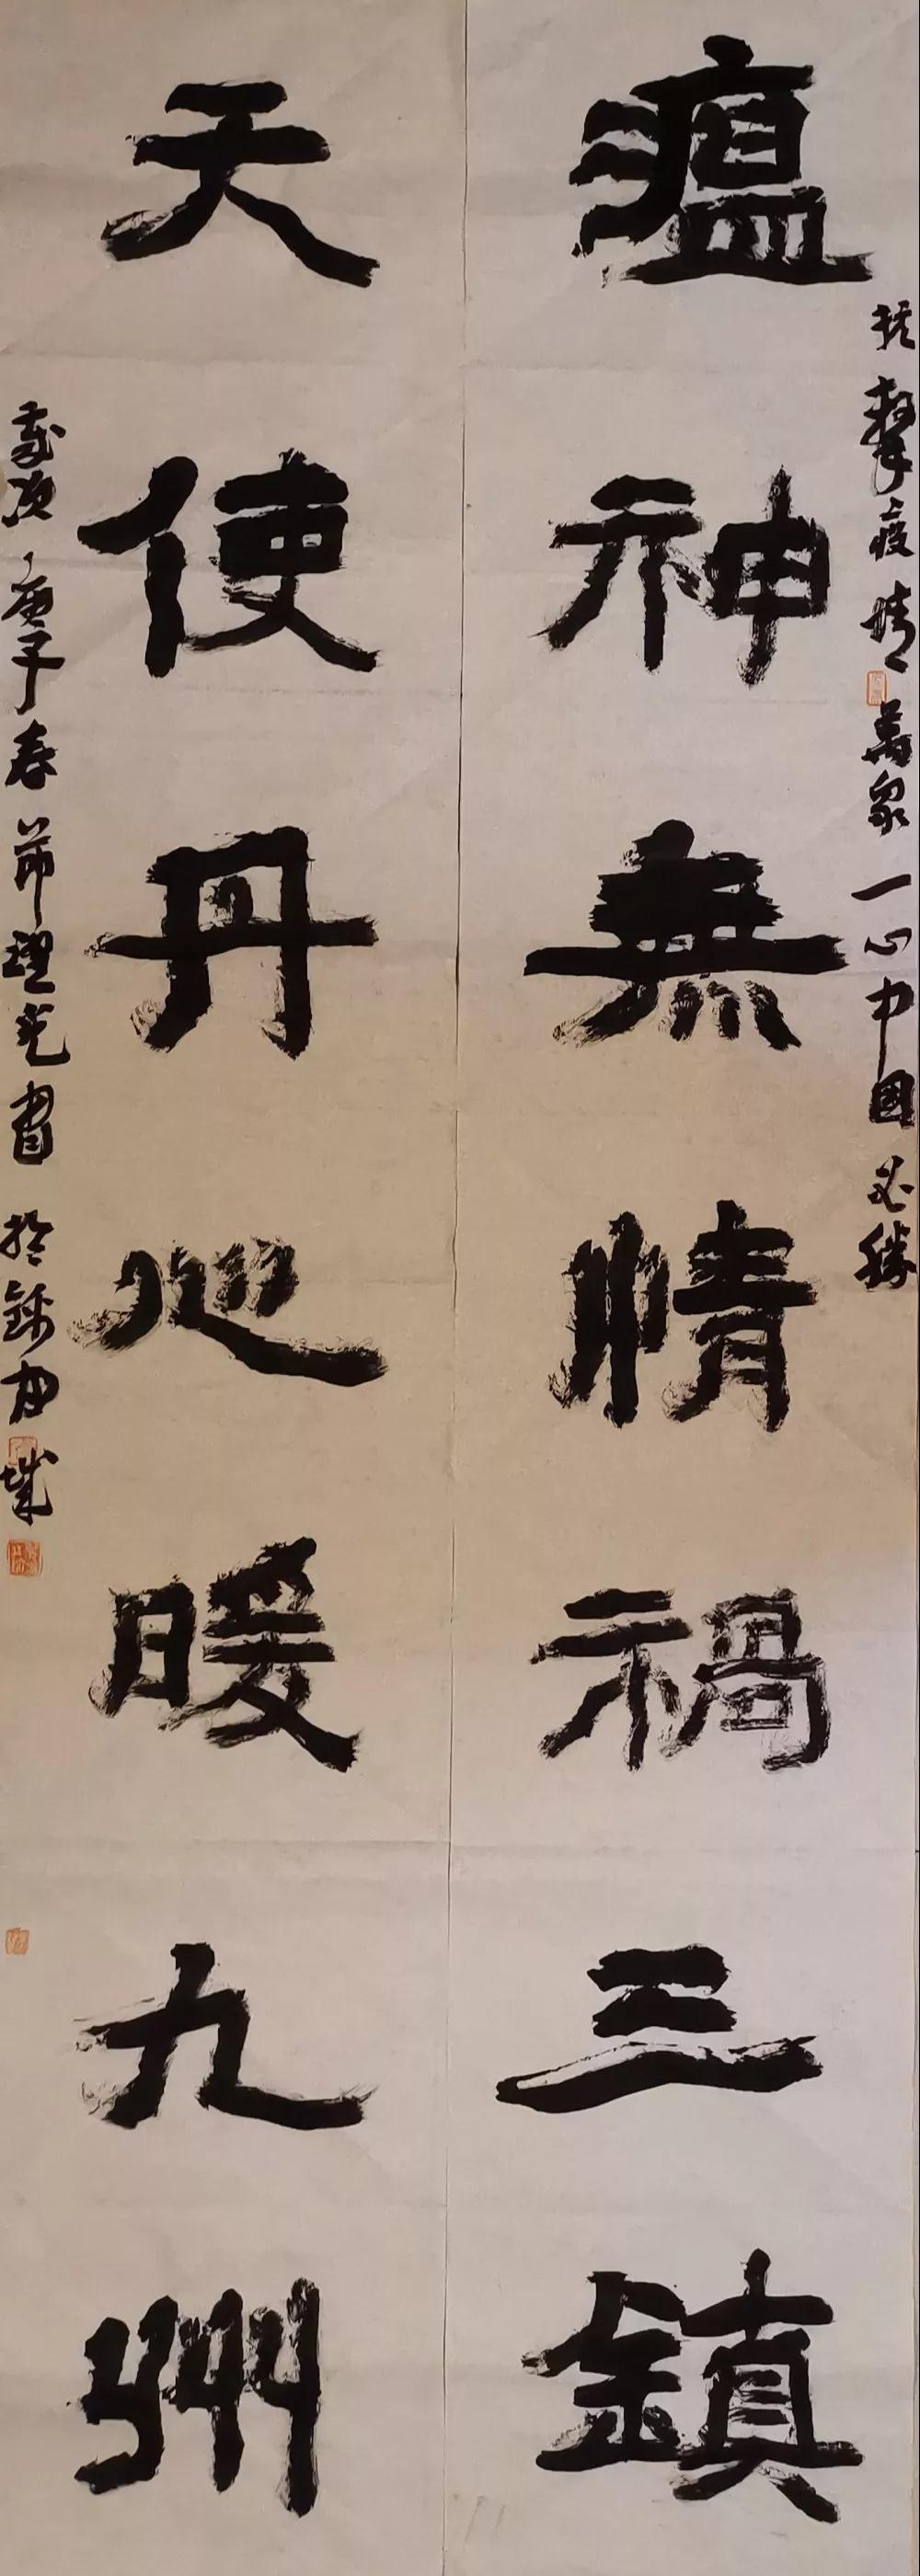 瘟神無情禍三鎮
抗擊疫情萬衆一心中國必勝
天使丹心暖九州
歲次庚子春節理光書於錦州城